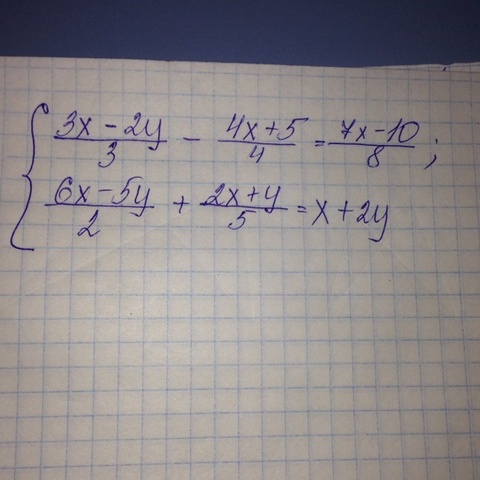 { (3x - 2y)/3 - (4x + 5)/4 = (7x - 10)/8 ;
(6x - 5y)/2 + (2x + y)/5 = x + 2y